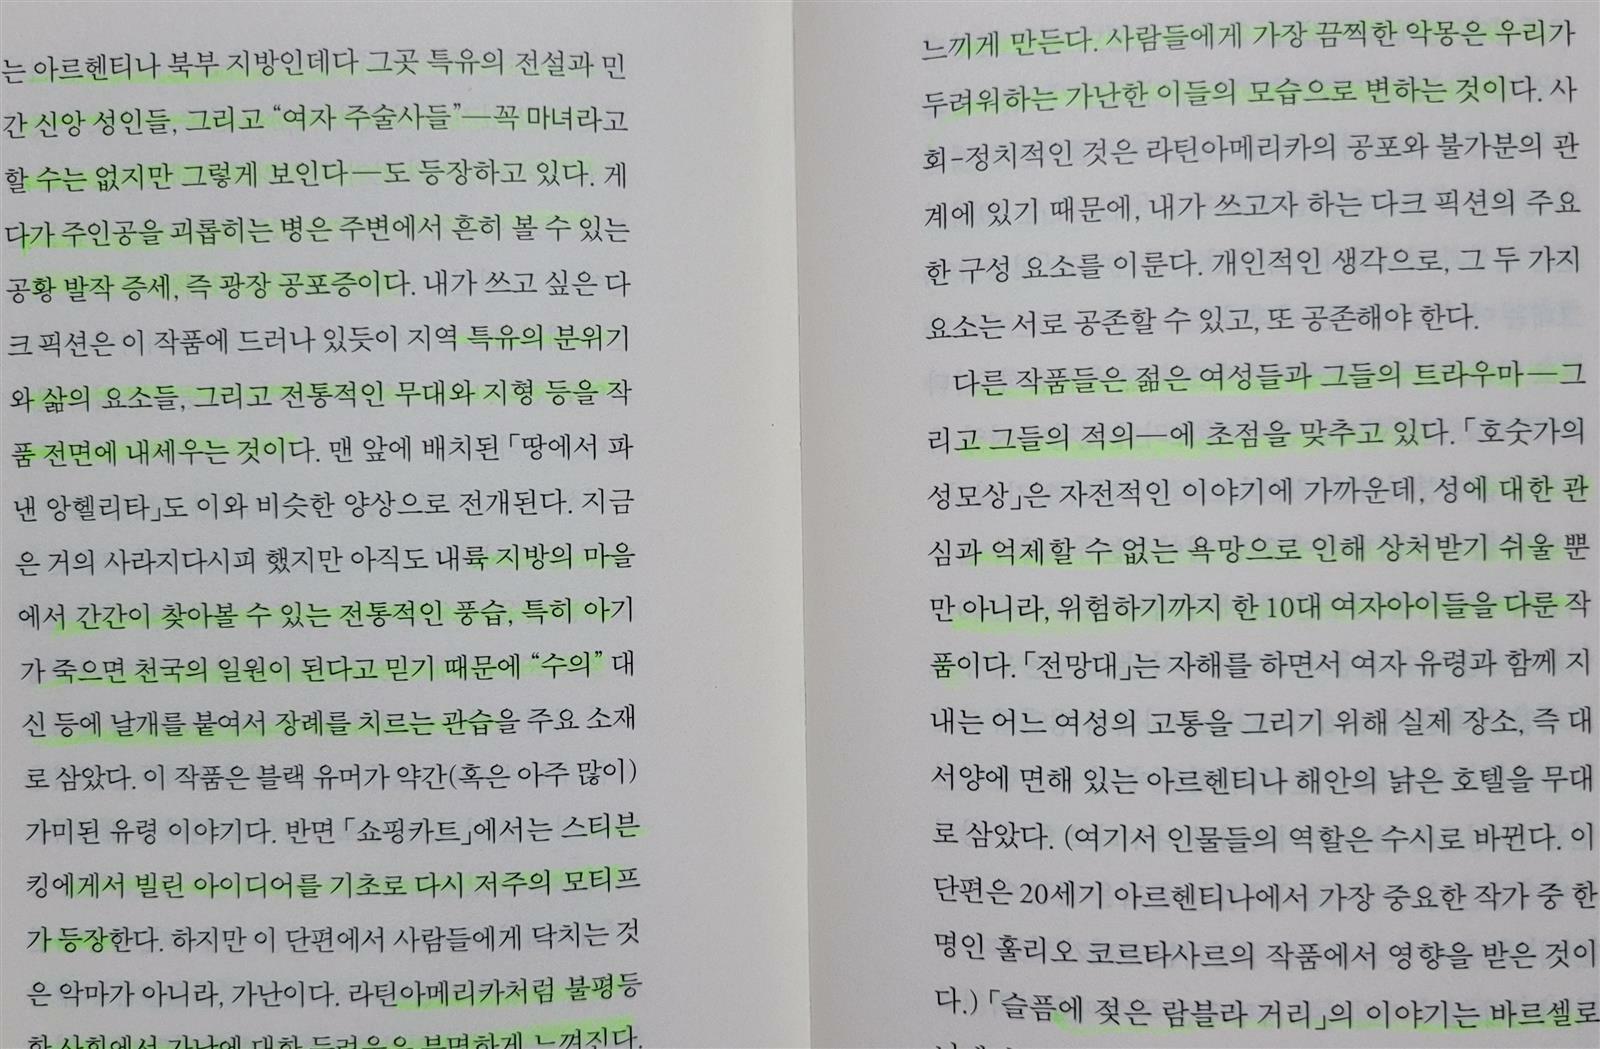 는 아르헨티나 북부 지방인데다 그곳 특유의 전설과 민
간 신앙 성인들, 그리고 “여자 주술사들”—꼭 마녀라고
할 수는 없지만 그렇게 보인다—도 등장하고 있다. 게
다가 주인공을 괴롭히는 병은 주변에서 흔히 볼 수 있는
공황 발작 증세, 즉 광장 공포증이다. 내가 쓰고 싶은 다
크 픽션은 이 작품에 드러나 있듯이 지역 특유의 분위기
와 삶의 요소들, 그리고 전통적인 무대와 지형 등을 작
품 전면에 내세우는 것이다. 맨 앞에 배치된 「땅에서 파
낸 앙헬리타」도 이와 비슷한 양상으로 전개된다. 지금
은 거의 사라지다시피 했지만 아직도 내륙 지방의 마을
에서 간간이 찾아볼 수 있는 전통적인 풍습, 특히 아기
가 죽으면 천국의 일원이 된다고 믿기 때문에 “수의” 대
신 등에 날개를 붙여서 장례를 치르는 관습을 주요 소재
로 삼았다. 이 작품은 블랙 유머가 약간(혹은 아주 많이)
가미된 유령 이야기다. 반면 「쇼핑카트」에서는 스티븐
킹에게서 빌린 아이디어를 기초로 다시 저주의 모티프
가 등장한다. 하지만 이 단편에서 사람들에게 닥치는 것
은 악마가 아니라, 가난이다. 라틴아메리카처럼 불평등
한 사회에서 가난에 대한 두려움은 분명하게 느껴진다.
느끼게 만든다. 사람들에게 가장 끔찍한 악몽은 우리가
두려워하는 가난한 이들의 모습으로 변하는 것이다. 사
회-정치적인 것은 라틴아메리카의 공포와 불가분의 관
계에 있기 때문에, 내가 쓰고자 하는 다크 픽션의 주요
한 구성 요소를 이룬다. 개인적인 생각으로, 그 두 가지
요소는 서로 공존할 수 있고, 또 공존해야 한다.
다른 작품들은 젊은 여성들과 그들의 트라우마—그
리고 그들의 적의—에 초점을 맞추고 있다. 「호숫가의
성모상」은 자전적인 이야기에 가까운데, 성에 대한 관
심과 억제할 수 없는 욕망으로 인해 상처받기 쉬울 뿐
만 아니라, 위험하기까지 한 10대 여자아이들을 다룬 작
품이다. 「전망대」는 자해를 하면서 여자 유령과 함께 지
내는 어느 여성의 고통을 그리기 위해 실제 장소, 즉 대
서양에 면해 있는 아르헨티나 해안의 낡은 호텔을 무대
로 삼았다. (여기서 인물들의 역할은 수시로 바뀐다. 이
단편은 20세기 아르헨티나에서 가장 중요한 작가 중 한
명인 훌리오 코르타사르의 작품에서 영향을 받은 것이
다.) 「슬픔에 젖은 람블라 거리」의 이야기는 바르셀로